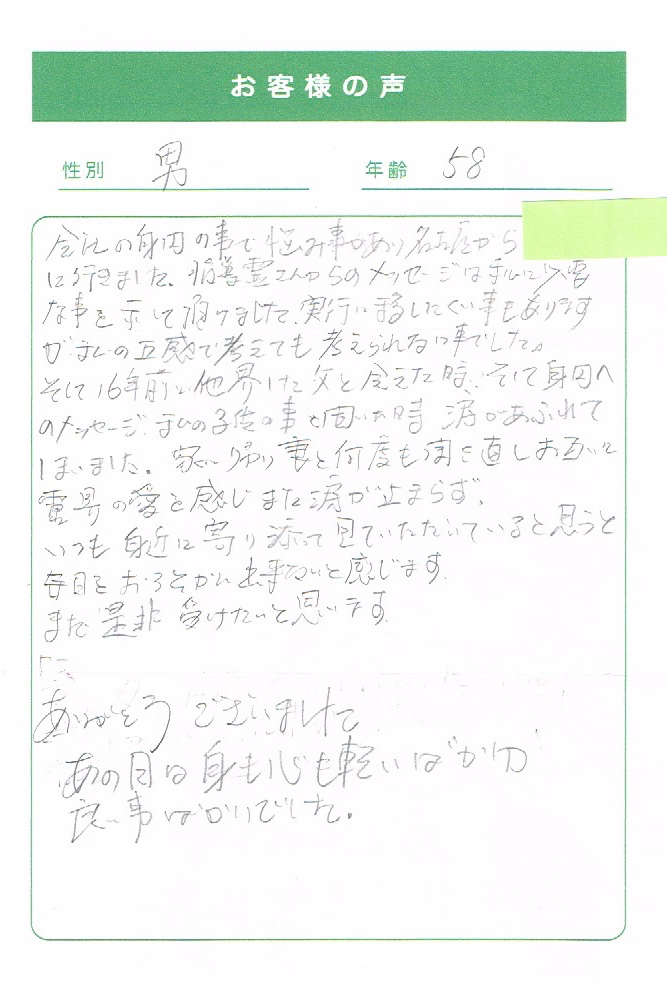 お客様の声
性別 男 年齢 58
会社の身内の事で悩み事があり名古屋から
に行きました。指導霊さんからのメッセージは私に必要
な事を示して頂けました、実行に移しにくい事もあります
が私の五感で考えても考えられない事でした。
そして16年前に他界した父と会えた時、そして身内へ
のメッセージ、私の子供の事を聞いた時 涙があふれて
しまいました。家に帰り妻と何度も聞き直しお互いに
霊界の愛を感じまた涙が止まらず、
いつも身近に寄り添って見ていただいていると思うと
毎日をおろそかに出来ないと感じます
また是非受けたいと思います。
ありがとうございました
あの日は身も心も軽いばかり
良い事ばかりでした。